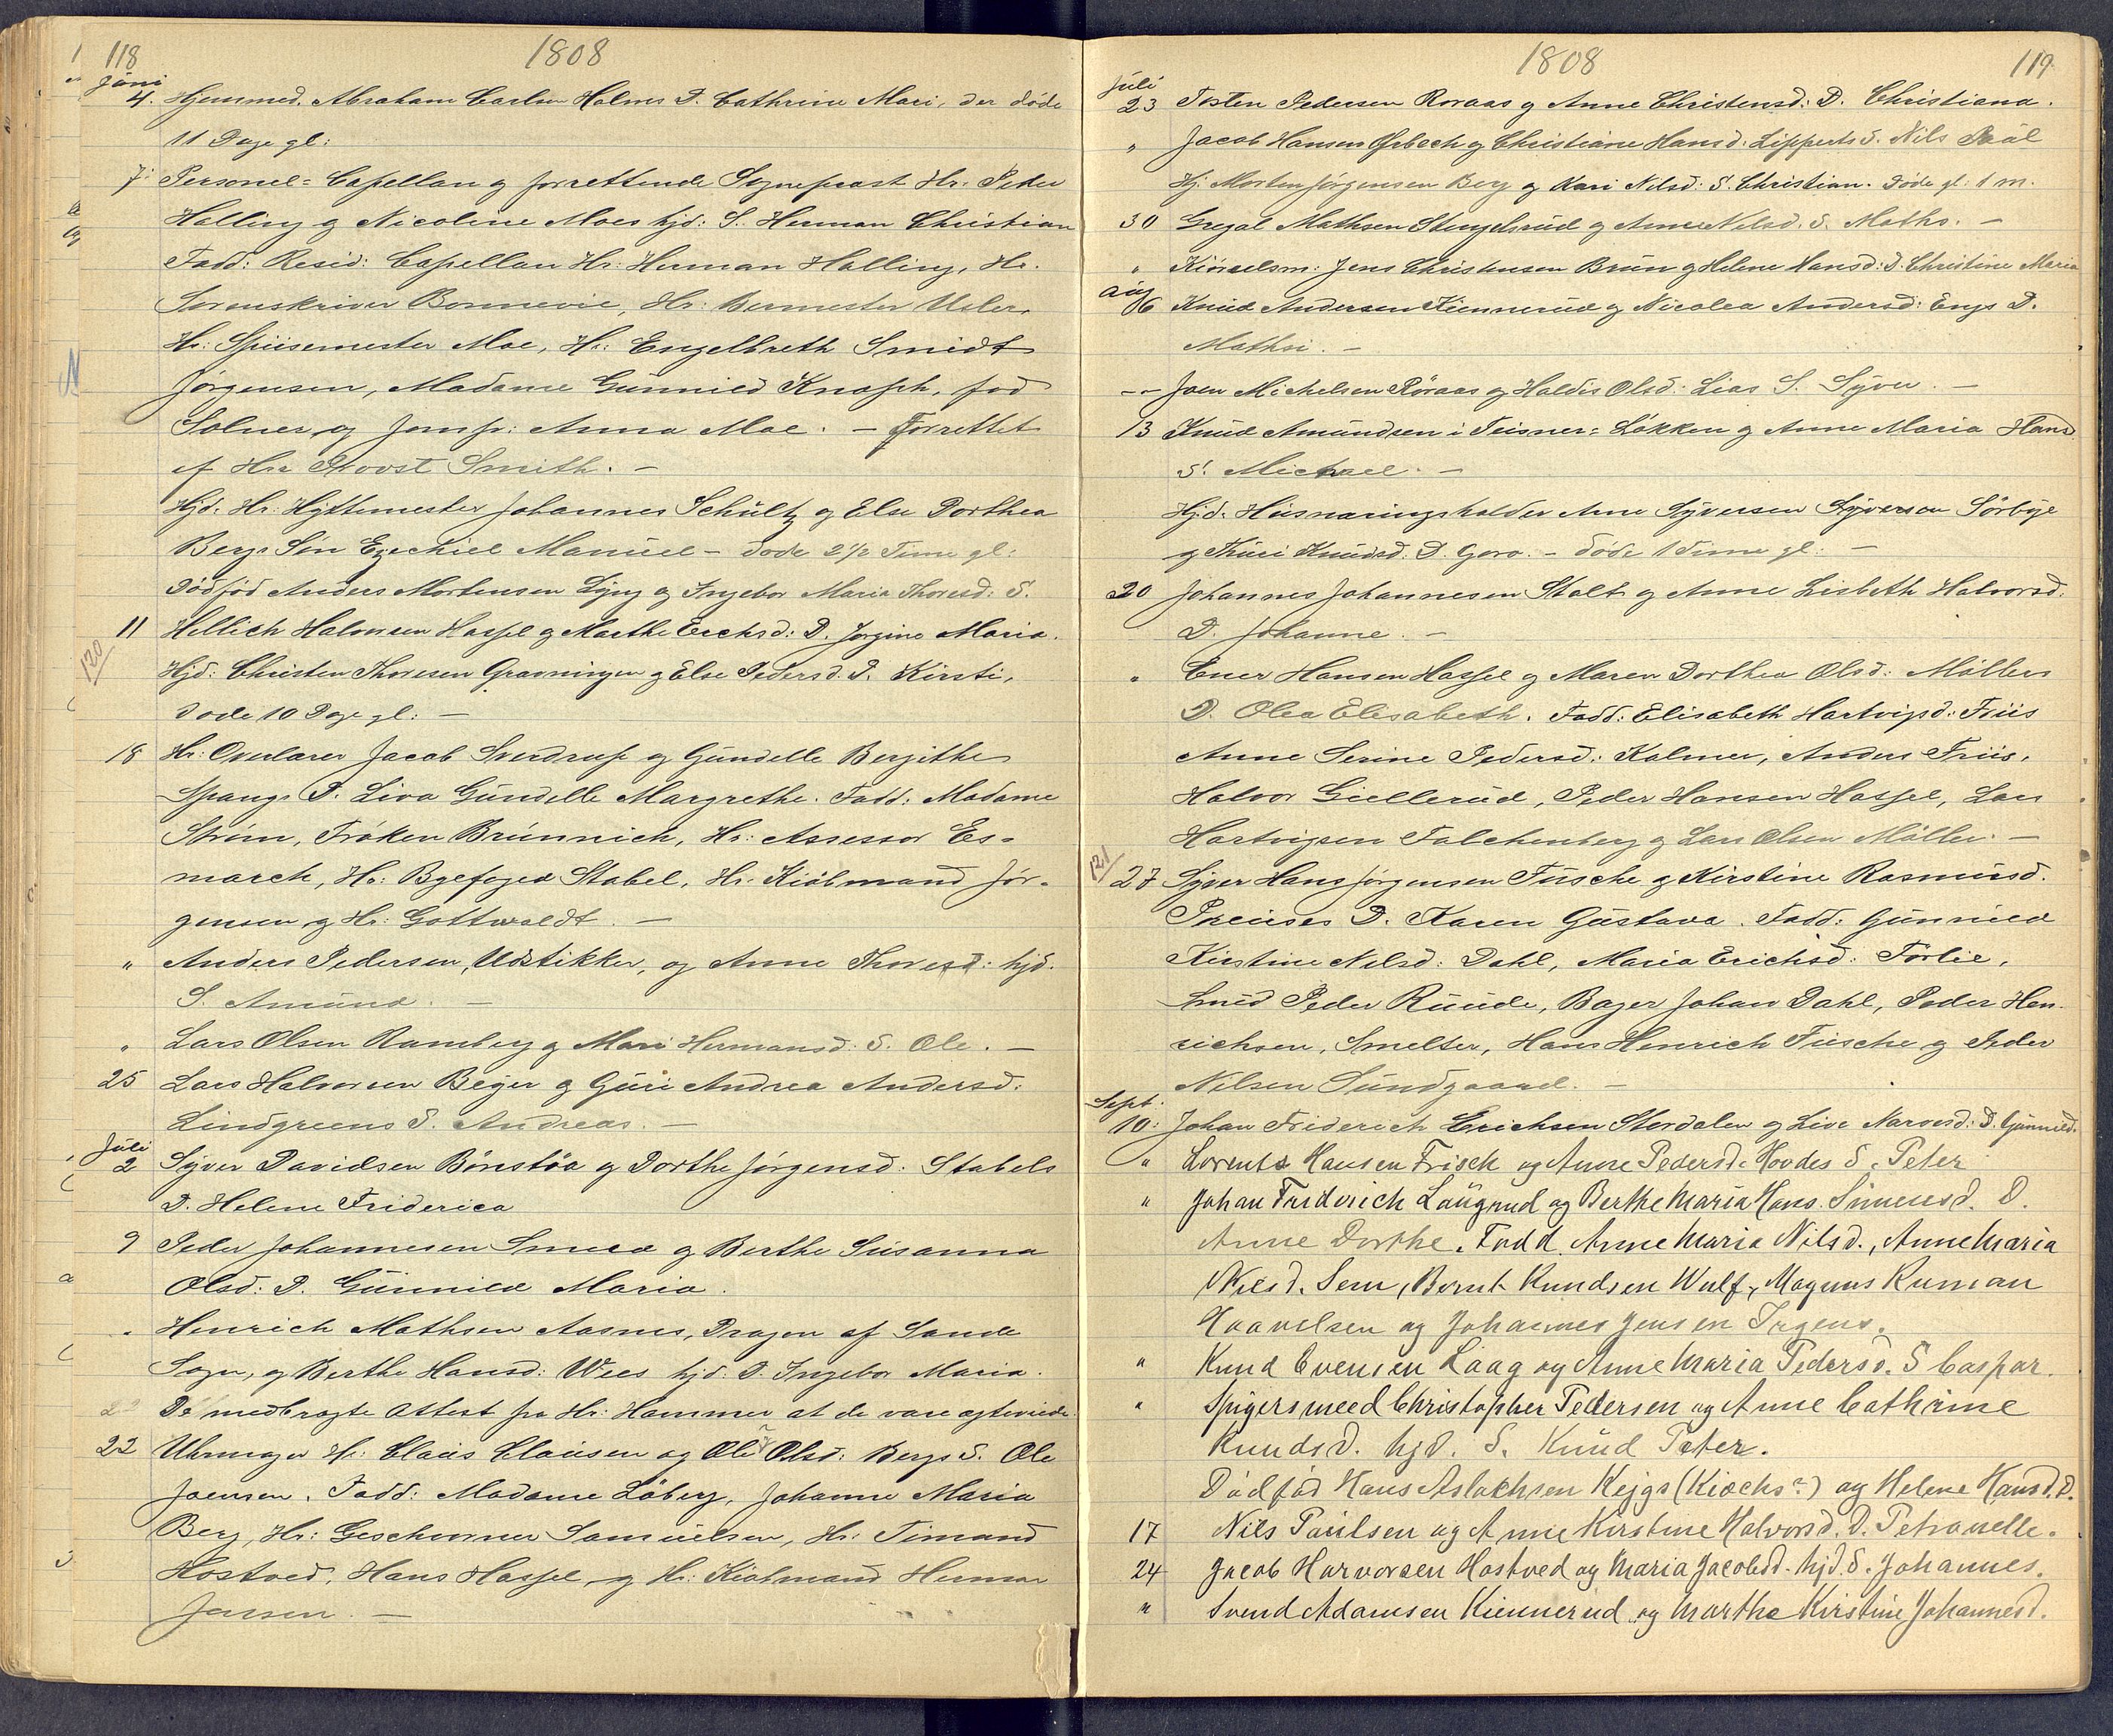 118
1808
Juni
4. Hjemmed. Abraham Carlsen Holmes D. Cathrine Mari, der døde
11 Dage gl:
7. Personel= Capellan og forrettende Sognepræst Hr. Peder
Halling og Nicoline Moes hjd: S. Herman Christian
Fadd: Resid: Capellan Hr: Herman Halling, Hr.
Sorenskriver Bonnevie, Hr: Bermester Usler,
Hr: Spiisemester Moe, Hr: Engelbreth Smidt
Jørgensen, Madame Gunnild Knoph, fød
Solner og Jomfr: Anna Moe. – Forrettet
af Hr: Provst Smith. –
Hjd. Hr: Hyttemester Johannes Schultz og Else Dorthea
Bergs Søn Ezechiel Manuel – døde 2 1/2 Time gl:
Dødfød Anders Mortensen Lyng og Ingebor Maria Thoresd: S.
11 Hellich Halvorsen Hassel og Marthe Erichsd: D. Jorgine Maria.
120
Hjd: Christen Thoresen Gravningen og Else Pedersd. D. Kirsti,
døde 10 Dage gl: –
18 Hr: Overlærer Jacob Sverdrup og Gundelle Bergithe
Spangs D. Liva Gundelle Margrethe. Fadd: Madame
Strøm, Frøken Brünnich, Hr: Assessor Es=
march, Hr: Byefoged Stabel, Hr. Kiøbmand Jør=
gensen og Hr: Gottwaldt. –
" Anders Pedersen, Udstikker, og Anne Thoresd: hjd.
S. Amund. –
" Lars Olsen Ramberg og Mari Hermansd: S. Ole. –
25 Lars Halvorsen Beyer og Guri Andrea Andersd:
Lindgreens S. Andreas. –
Juli
2 Syver Davidsen Bönstöa og Dorthe Jørgensd: Stabels
D. Helene Friderica
9 Peder Johannesen Smed og Berthe Susanna
Olsd: D. Gunnild Maria.
" Henrich Mathsen Aasnes, Dragon af Sande
Sogn, og Berthe Hansd: Wees hjd: D. Ingebor Maria.
De medbragte Attest fra Hr: Hammer at de vare ægteviede.
22 Uhrmager Hr: Claus Clausen og Ole Olsd: Bergs S. Ole
Joensen. Fadd: Madame Løberg, Johanne Maria
Berg, Hr: Geschworner Samuelsen, Hr: Timand
Hostved, Hans Hassel og Hr: Kiøbmand Herman
Jansen. –
1808
119
Juli
23 Tosten Pedersen Roraas og Anne Christensd: D. Christiana.
" Jacob Hansen Ørbech og Christiane Hansd: Lipperts S. Nils Paul
Hj. Morten Jørgensen Berg og Kari Nilsd: S. Christian. døde gl: 1 m.
30 Gregal Mathsen Stengelsrud og Anne Nilsd. S. Maths. –
" Kiörselsm: Jens Christensen Brun og Helene Hansd: D. Christine Maria
Aug
6 Knud Andersen Kiennerud og Nicolea Andersd: Engs D.
Mathsi. –
– – Joen Michelsen Röraas og Haldis Olsd: Lias S. Syver. –
13 Knud Amundsen i Teisner= Løkken og Anne Maria Hansd.
S. Michael. –
Hjd. Huusnæringsholder Arne Syversen Syversen Sörbye
og Thuri Knudsd: D. Goro. – døde 1 Time gl: –
20 Johannes Johannesen Stolt og Anne Lisbeth Halvorsd:
D. Johanne. –
" Ener Hansen Hassel og Maren Dorthea Olsd: Møllers
D. Olea Elisabeth. Fadd: Elisabeth Hartvigsd: Friis
Anne Serine Pedersd: Kolmer, Anders Friis,
Halvor Giellerud, Peder Hansen Hassel, Lars
Hartvigsen Falchenberg og Lars Olsen Møller. –
121
27 Syver Hans Jørgensen Tusche og Kirstine Rasmusd.
Preuses D. Karen Gustava. Fadd: Gunnild
Kirstine Nilsd: Dahl, Maria Erichsd: Forlie,
Smed Peder Ruude, Bager Johan Dahl, Peder Hen-
richsen, Smelter, Hans Henrich Tusche og Peder
Nilsen Sundgaard. –
Sept.
10: Johan Friderich Erichsen Stordalen og Live Narvesd: D. Gunnild.
" Lorents Hansen Frisch og Anne Pedersd: Hovdes S. Peter
" Johan Friderich Laugrud og Berthe Maria Hans Simensd. D.
Anne Dorthe. Fadd. Anne Maria Nilsd., Anne Maria
Nilsd. Sem, Bernt Kundsen Wulf, Magnus Ruman
Haavelsen og Johannes Jensen Irgens.
" Knud Evensen Laag og Anne Maria Pedersd. S Caspar.
" Spigersmeed Christopher Pedersen og Anne Cathrine
Knudsd. hjd. S. Knud Peter.
Dødfød Hans Aslachsen Kejgs (Kiøchs?) og Helene Hansd. D.
17 Nils Paulsen og Anne Kirstine Halvorsd. D. Petronelle.
24 Jacob Harvorsen Hostved og Maria Jacobsd. hjd. S. Johannes.
" Svend Adamsen Kiennerud og Marthe Kirstine Johannesd.